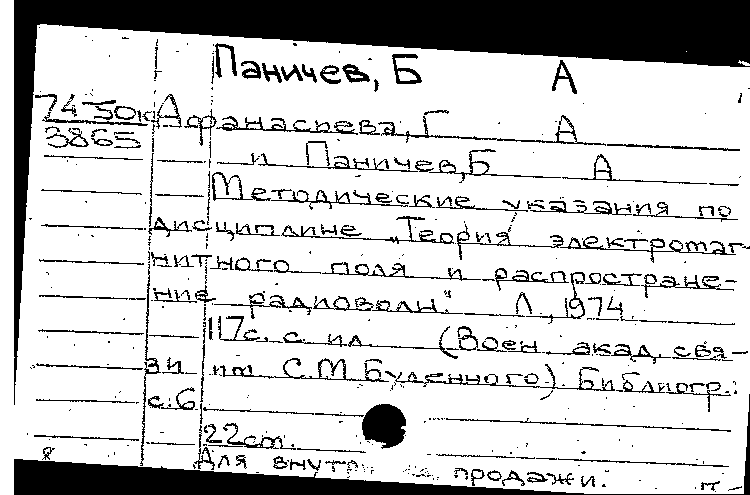 Паничев, Б А
74-50к Афанасьева, Г А
3865
и Паничев, Б А
Методические указания по
дисциплине „Теория электромаг-
нитного поля и распростране-
ние радиоволн." Л, 1974.
117с. с ил. (Воен. акад. свя-
зи им С.М. Буденного). Библиогр.:
с. 6.
22cm.
Для продажи.